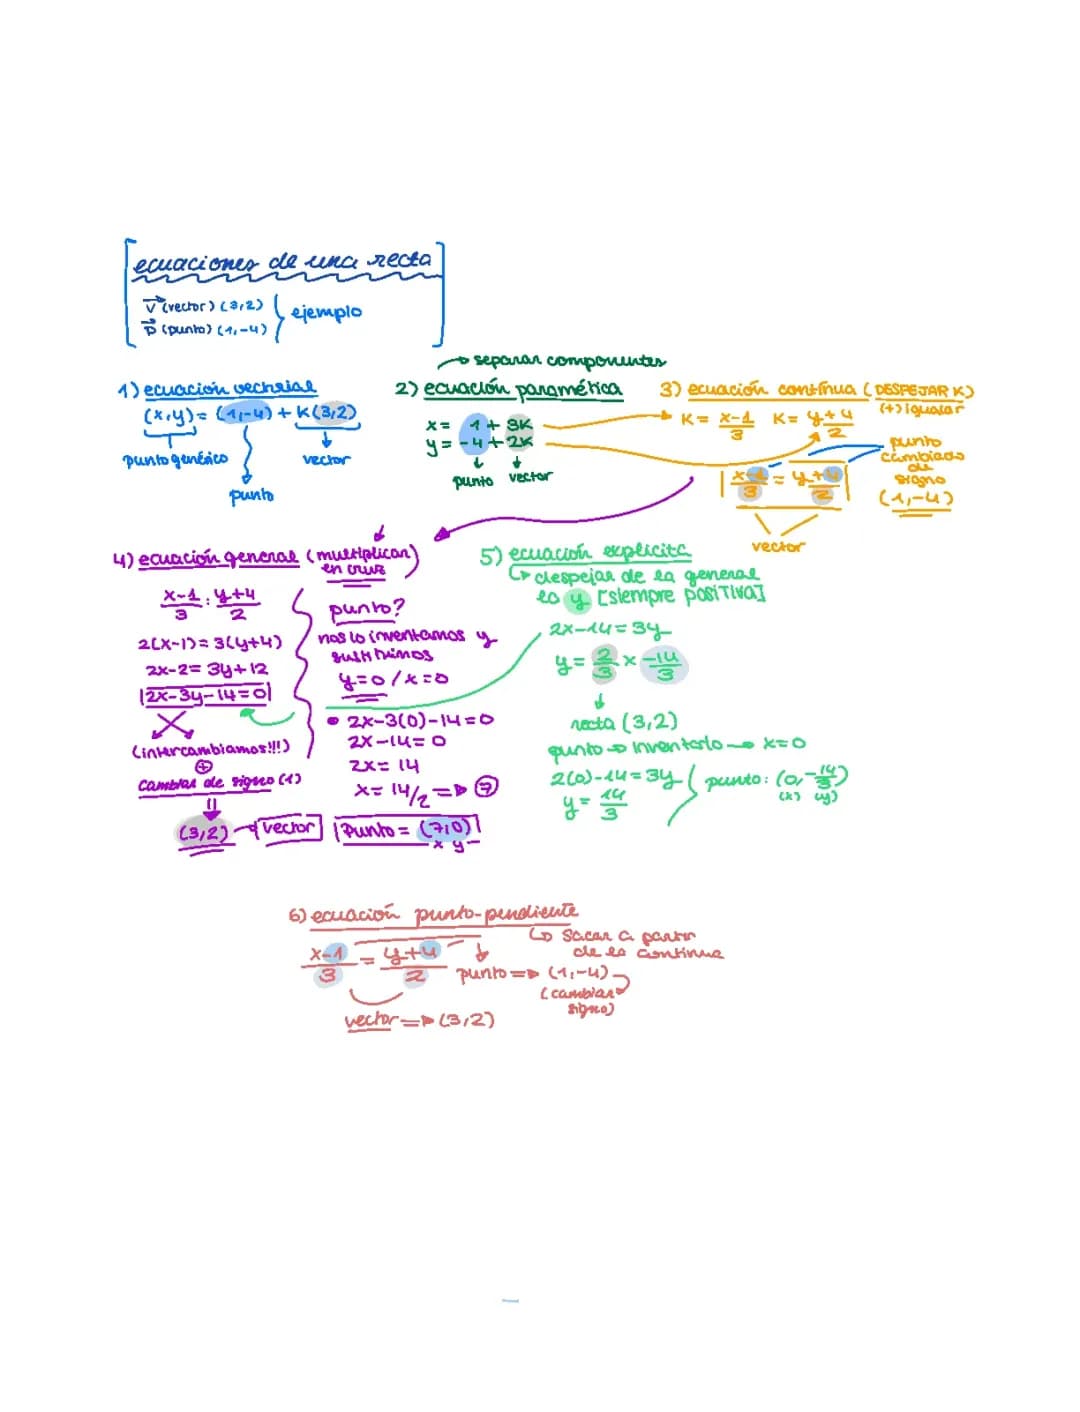 ecuaciones de una recta
V (vector) (3,2)
P (punto) (1,-4)
ejemplo
1) ecuación vectorial
(x,y) = (1,-4) + K(3,2)
punto genérico
vector
punto
separar componentes
2) ecuación paramétrica
x = 1 + 3K
y = -4 + 2K
punto vector
3) ecuación continua (DESPEJAR K)
(+) igualar
K = x-1/3 K = y+4/2
x-1/3 = y+4/2
punto
cambiado
de
signo
(1,-4)
vector
4) ecuación general (multiplican)
en cruz
x-1/3 : y+4/2
2(x-1) = 3(y+4)
2x-2 = 3y+12
2x-3y-14=0
(intercambiamos!!!)
+
cambiar de signo (1)
(3,2) vector
punto?
nos lo inventamos y
sustituimos
y=0 / x=0
• 2x-3(0)-14=0
2x-14=0
2x=14
x= 14/2 => 7
Punto = (7,0)
x y
5) ecuación explicita
despejar de la general
la y [siempre POSITIVA]
2x-14=3y
y = 2/3 x -14/3
recta (3,2)
punto → inventarlo → x=0
2(0)-14=3y
y = 14/3
punto: (0,-14/3)
(x) (y)
6) ecuación punto-pendiente
Sacar a partir
de la continua
x-1/3 = y+4/2
punto => (1,-4)
(cambiar
signo)
vector => (3,2)